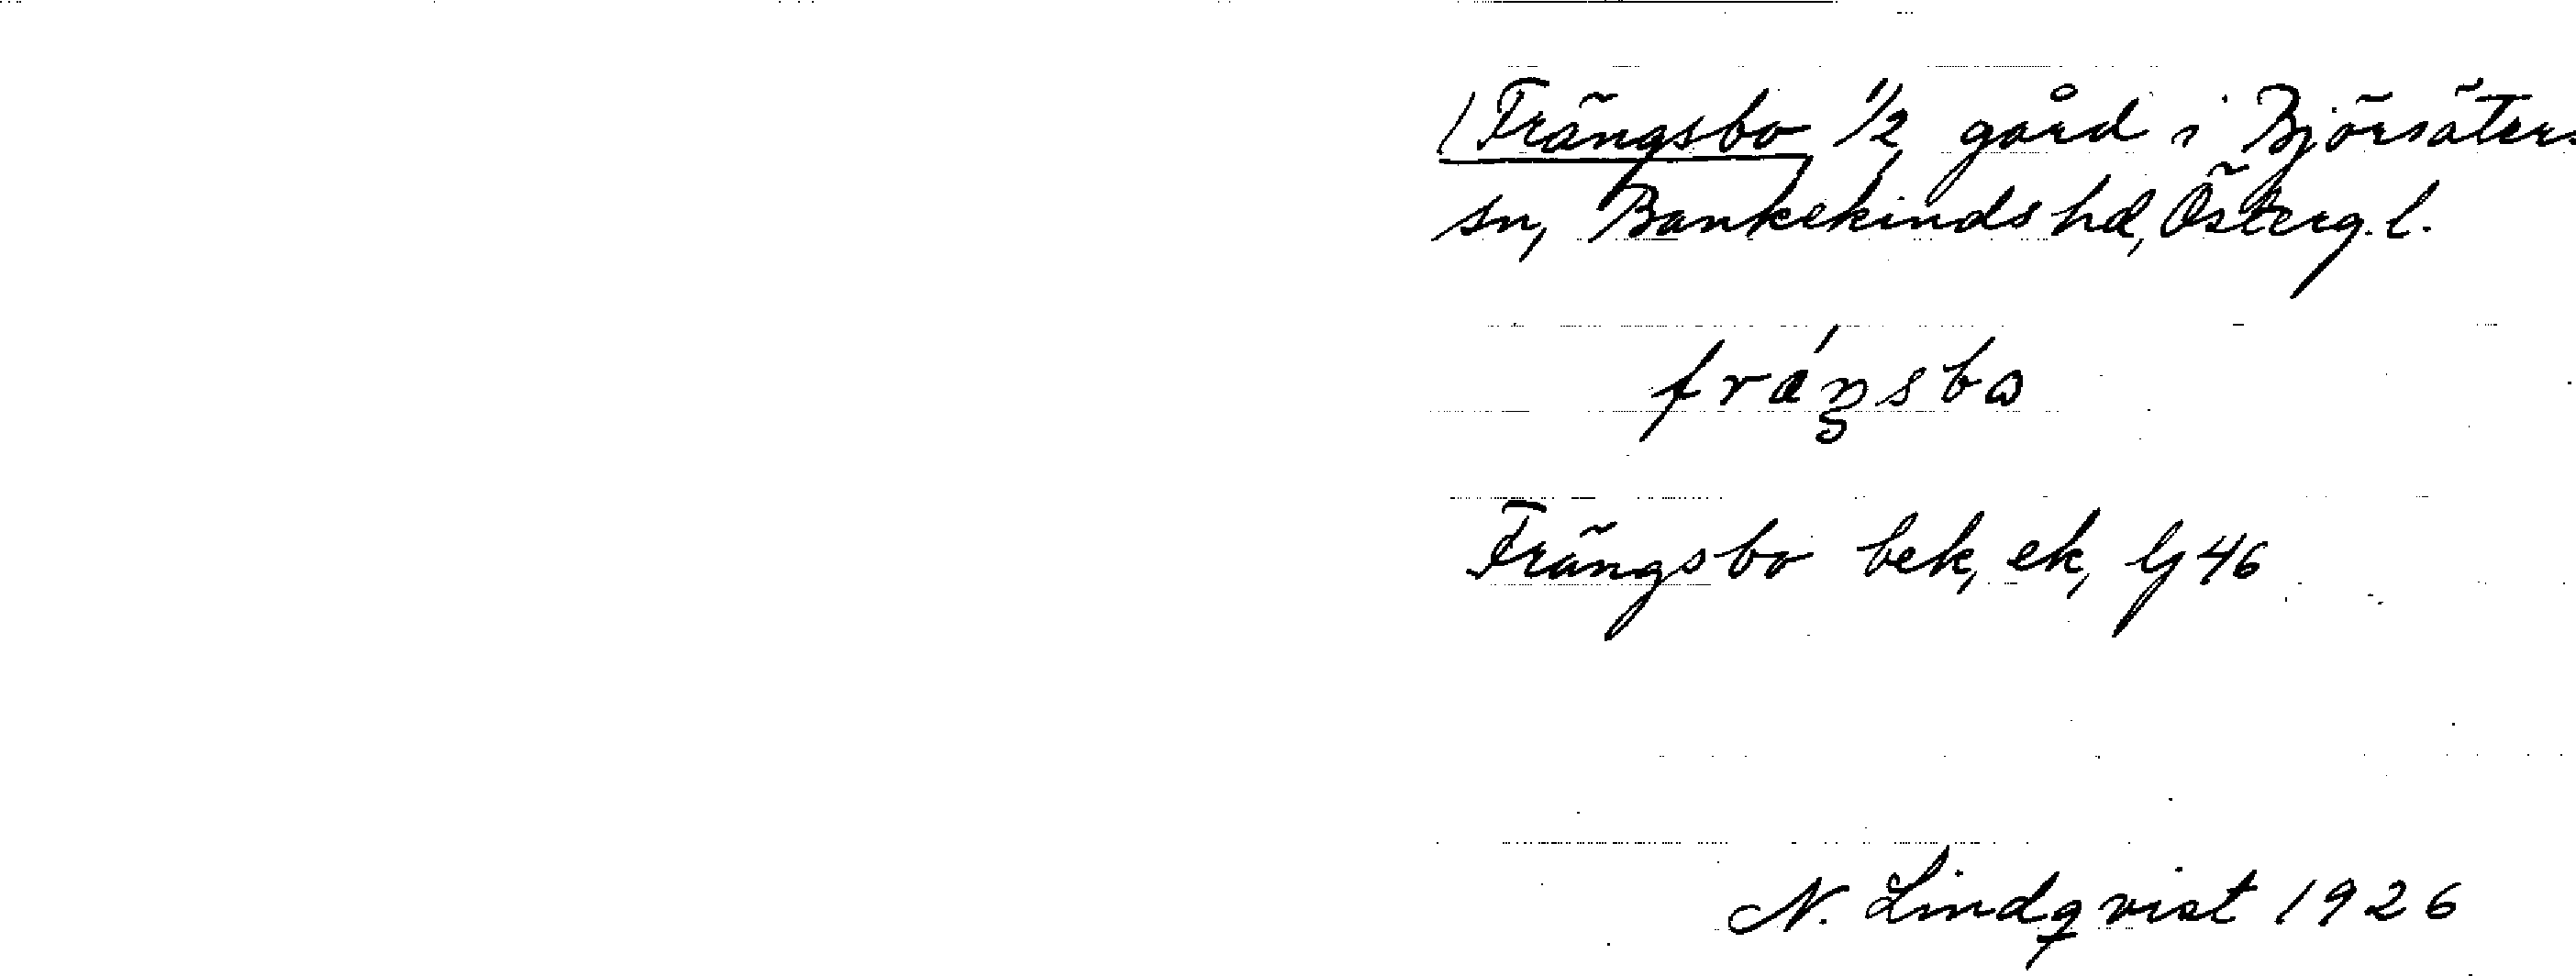 Frängsbo 1/2 gård i Björsäters
sn, Bankekinds hd, Österg. l.
fräŋsbω
Frängsbo bek, ek, lj 46
N. Lindqvist 1926